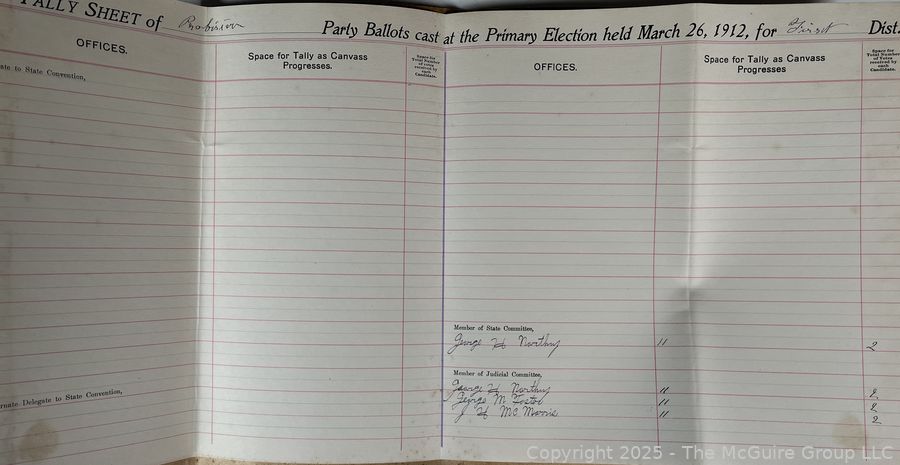 TALLY SHEET of Prohibition Party Ballots cast at the Primary Election held March 26, 1912, for First Dist.
OFFICES.
Space for Tally as Canvass
Progresses.
Space for
Total Number
of votes
received by
each
Candidate.
OFFICES.
Space for Tally as Canvass
Progresses
Space for
Total Number
of Votes
received by
each
Candidate.
ate to State Convention,
Member of State Committee,
George H Northy 11 2
Member of Judicial Committee,
George H Northy 11 2
George M Foster 11 2
J H Mc Morris 11 2
rnate Delegate to State Convention,
Copyright 2025 - The McGuire Group LLC